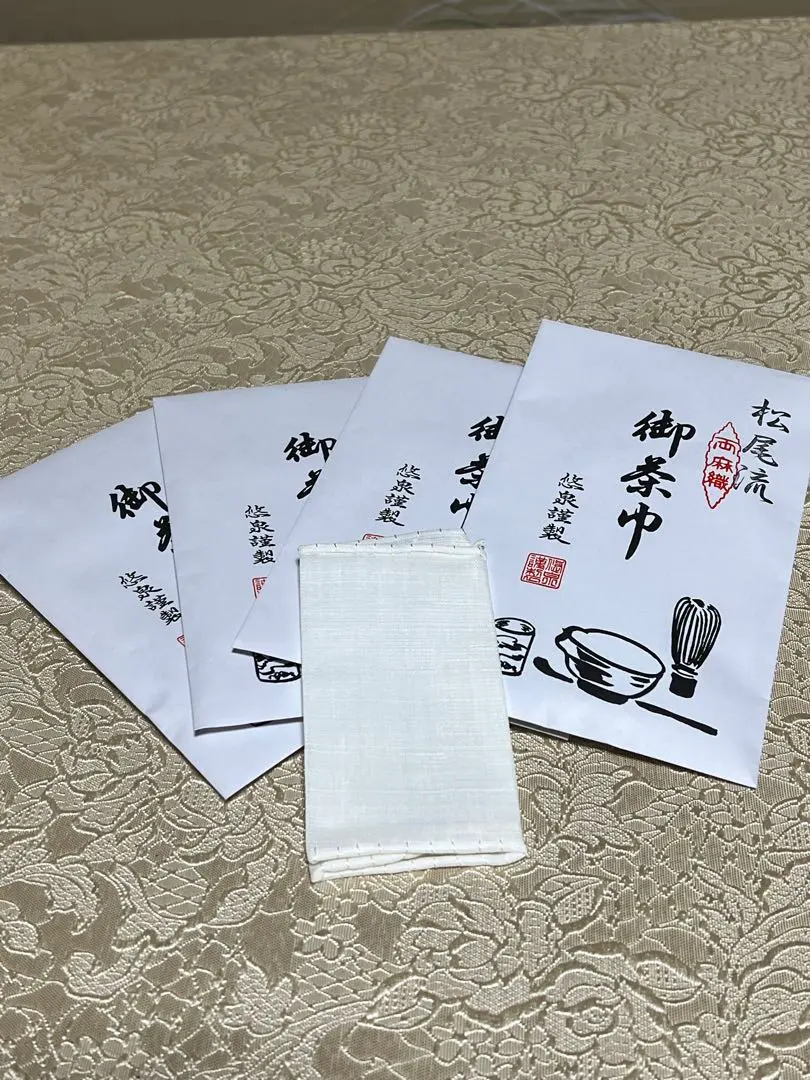 松尾流
両麻織
御茶巾
悠泉謹製
悠泉謹製
御茶巾
悠泉謹製
御
悠泉謹製
御茶
悠泉謹製